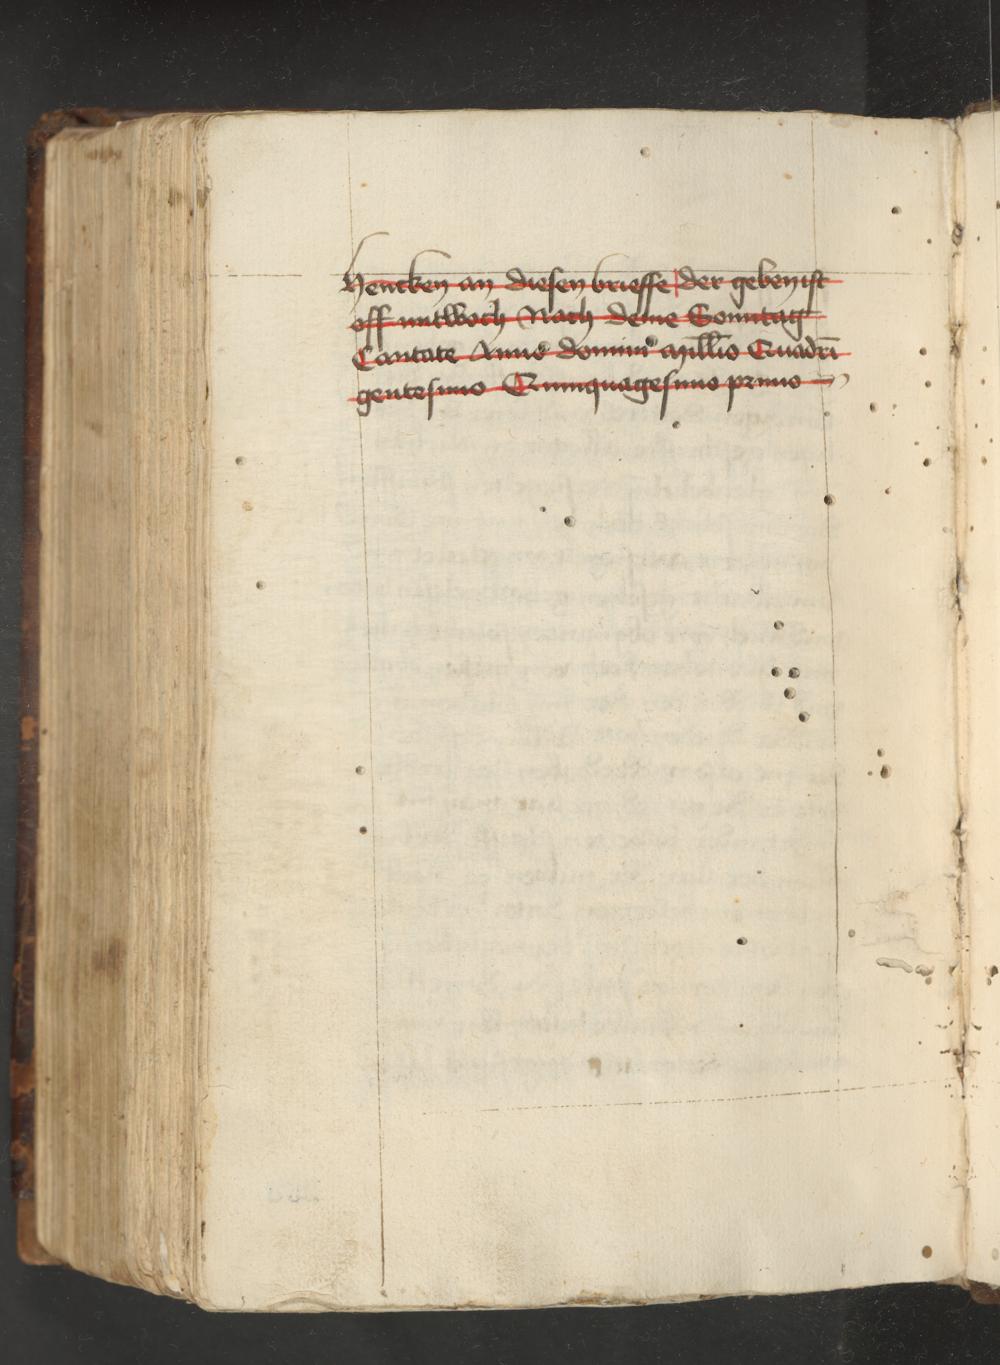 hencken an diesen brieffe der geben ist
off mitwoch Nach deme Sonntag
Cantate Anno domini millio Quadri
gentesimo Quinquagesimo primo